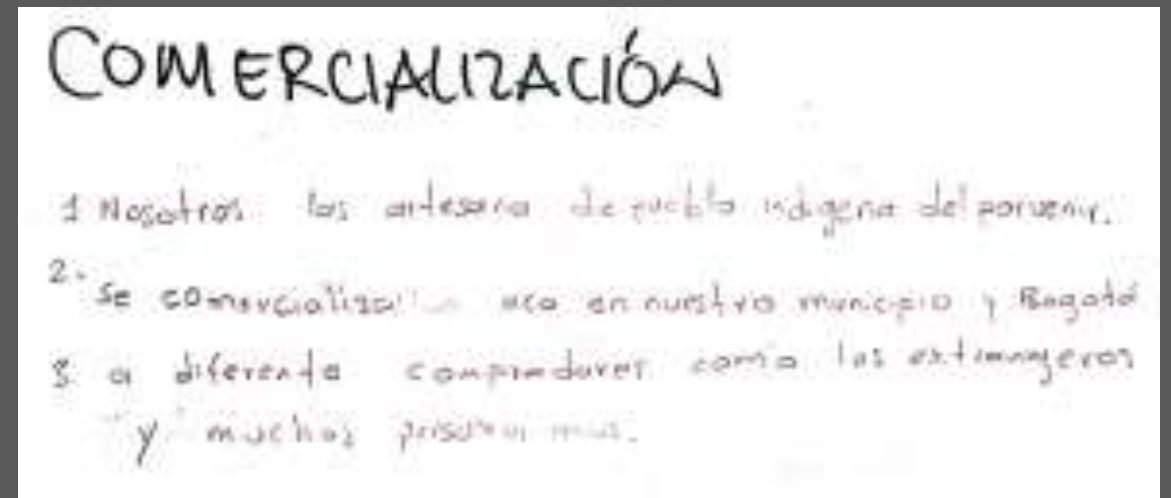 COMERCIALIZACIÓN
1 Nosotros los artesana de pueblo indigena del porvenir.
2. Se comercializa aca en nuestro municipio y Bogotá
3 a diferente compradores como los extranjeros
y muchas personas mas.